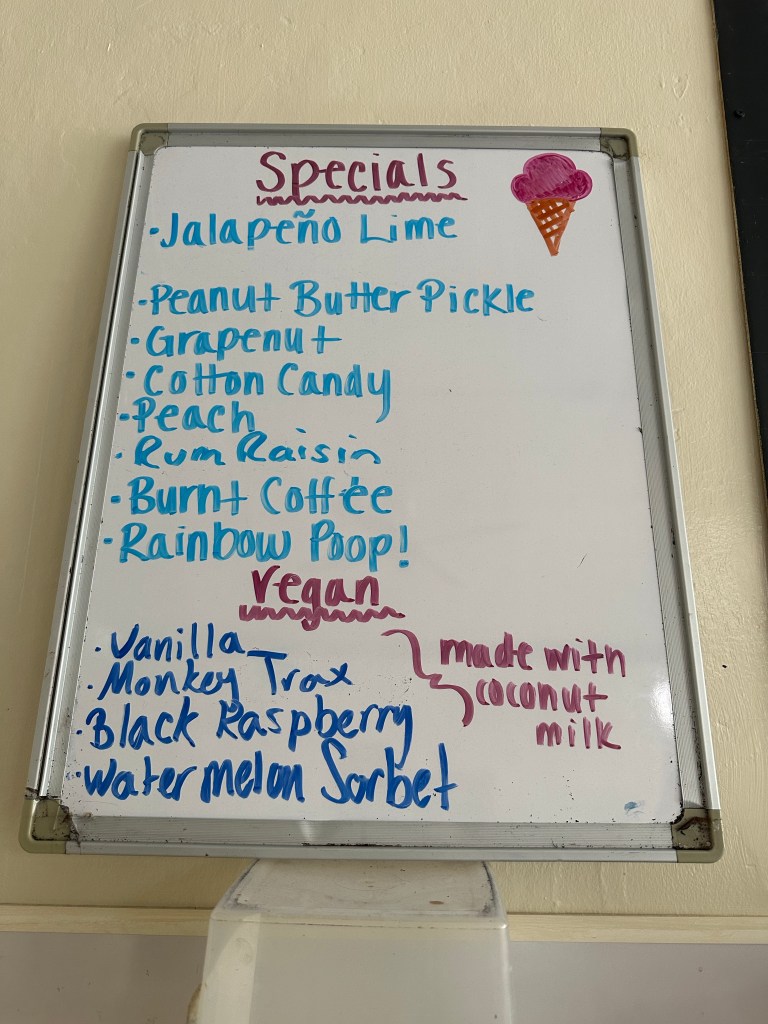 Specials
·Jalapeño Lime
·Peanut Butter Pickle
·Grapenut
·Cotton Candy
·Peach
·Rum Raisin
·Burnt Coffee
·Rainbow Poop!
Vegan
·Vanilla
·Monkey Trax
·Black Raspberry
·Watermelon Sorbet
made with
coconut
milk